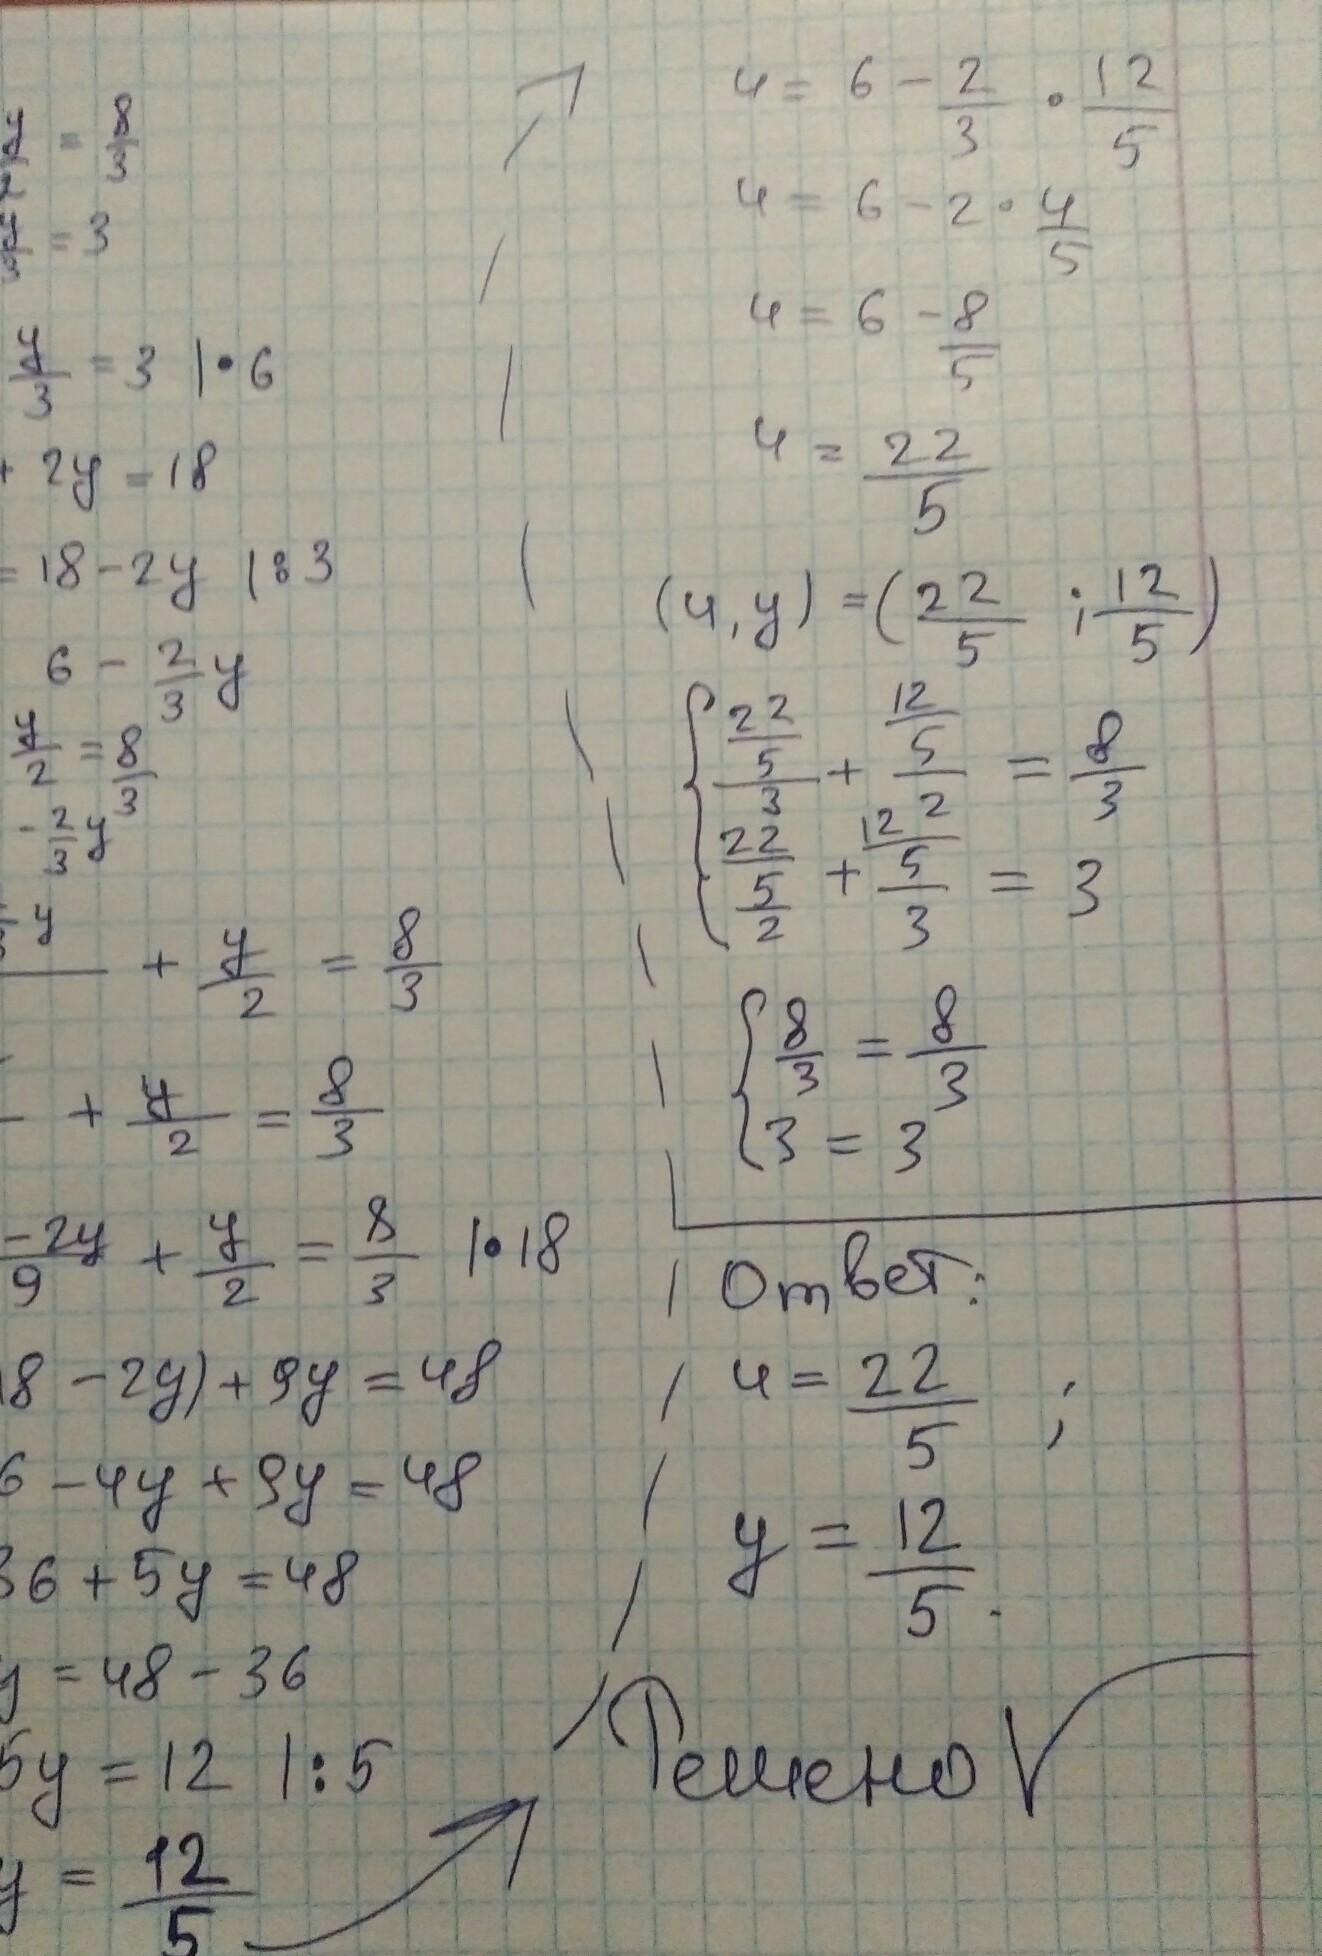 = 8/3
= 3
y/3 = 3 |•6
+ 2y = 18
= 18 - 2y |:3
6 - 2/3 y
y/2 = 8/3
- 2/3 y
y
+ y/2 = 8/3
+ y/2 = 8/3
-2y/9 + y/2 = 8/3 |•18
8 - 2y) + 9y = 48
6 - 4y + 9y = 48
36 + 5y = 48
y = 48 - 36
5y = 12 |:5
y = 12/5
4 = 6 - 2/3 • 12/5
4 = 6 - 2 • 4/5
4 = 6 - 8/5
4 = 22/5
(4, y) = (22/5 ; 12/5)
{ 22/5/3 + 12/5/2 = 8/3
22/5/2 + 12/5/3 = 3
{ 8/3 = 8/3
3 = 3
Ответ:
4 = 22/5 ;
y = 12/5.
Решено √